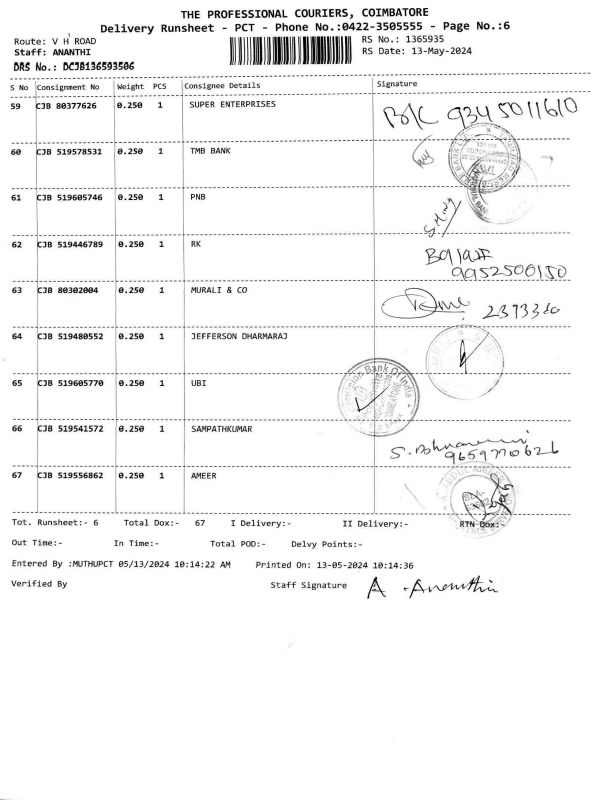 THE PROFESSIONAL COURIERS, COIMBATORE
Delivery Runsheet - PCT - Phone No.:0422-3505555 - Page No.:6
Route: V H ROAD RS No.: 1365935
Staff: ANANTHI RS Date: 13-May-2024
DRS No.: DCJB136593506
S No Consignment No Weight PCS Consignee Details Signature
59 CJB 80377626 0.250 1 SUPER ENTERPRISES
9345011610
60 CJB 519578531 0.250 1 TMB BANK
61 CJB 519605746 0.250 1 PNB
62 CJB 519446789 0.250 1 RK
9952500150
63 CJB 80302004 0.250 1 MURALI & CO
64 CJB 519480552 0.250 1 JEFFERSON DHARMARAJ
65 CJB 519605770 0.250 1 UBI
Union Bank Of India
66 CJB 519541572 0.250 1 SAMPATHKUMAR
67 CJB 519556862 0.250 1 AMEER
Tot. Runsheet:- 6 Total Dox:- 67 I Delivery:- II Delivery:- RTN Dox:-
Out Time:- In Time:- Total POD:- Delvy Points:-
Entered By :MUTHUPCT 05/13/2024 10:14:22 AM Printed On: 13-05-2024 10:14:36
Verified By Staff Signature A. Ananthi